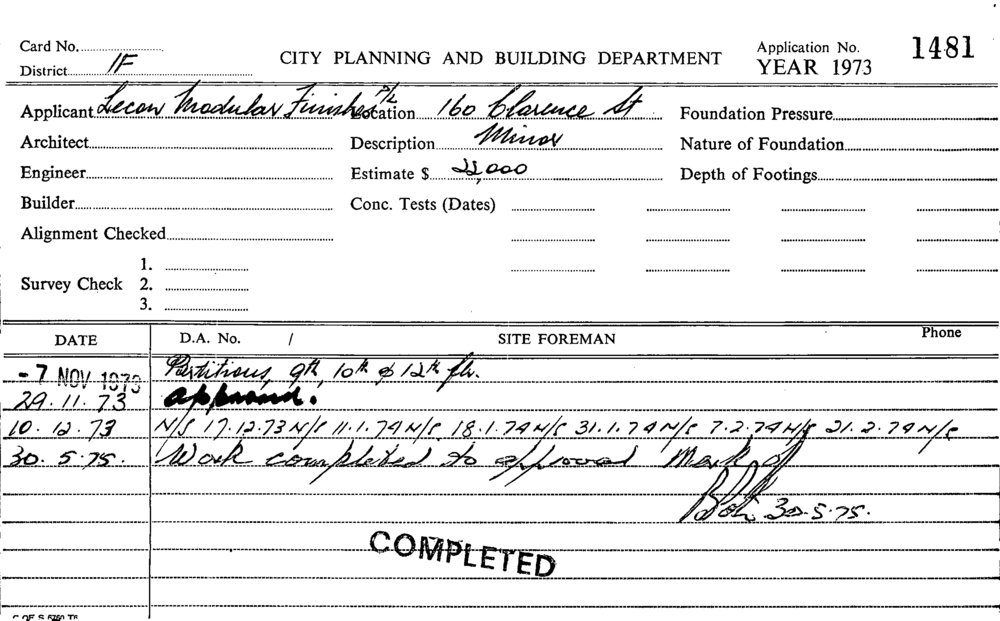 Card No.
District 1F
CITY PLANNING AND BUILDING DEPARTMENT
Application No. 1481
YEAR 1973
Applicant Lecon Modular Finishes P/L Location 160 Clarence St Foundation Pressure
Architect Description Minor Nature of Foundation
Engineer Estimate $ 22,000 Depth of Footings
Builder Conc. Tests (Dates)
Alignment Checked
1.
Survey Check 2.
3.
DATE D.A. No. / SITE FOREMAN Phone
- 7 NOV 1973 Partitions, 9th, 10th & 12th flr.
29.11.73 approved.
10.12.73 N/S 17.12.73 N/S 11.1.74 N/S 18.1.74 N/S 31.1.74 N/S 7.2.74 N/S 21.2.74 N/S
30.5.75. Work completed to approved Mark of
30.5.75.
COMPLETED
C OF S 5760 T6